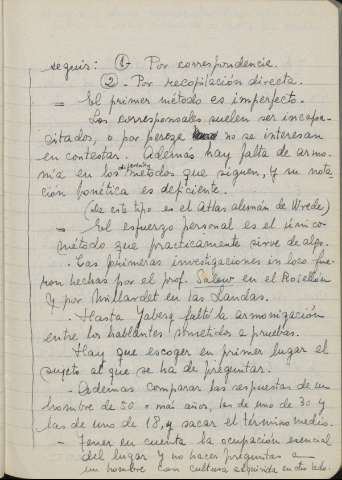 seguir: ① Por correspondencia.
② - Por recopilación directa.
= El primer método es imperfecto.
Los corresponsales suelen ser incapa-
citados, o por pereza no se interesan
en contestar. Además hay falta de armo-
nía en los métodos que siguen, y su nota-
ción fonética es deficiente.
(De este tipo es el Atlas alemán de Wrede)
= El esfuerzo personal es el único
método que practicamente sirve de algo.
- Las primeras investigaciones in loco fue-
ron hechas por el prof. Salow en el Rosellón
y por Millardet en las Landas.
- Hasta Jaberg faltó la armonización
entre los hablantes sometidos a pruebas.
- Hay que escoger en primer lugar el
sujeto al que se ha de preguntar.
- Ademas comparar las respuestas de un
hombre de 50 o mai años, las de uno de 30 y
las de uno de 18, y sacar el término medio.
- Tener en cuenta la ocupación esencial
del lugar y no hacer preguntas a
un hombre con cultura adquirida en otro lado.